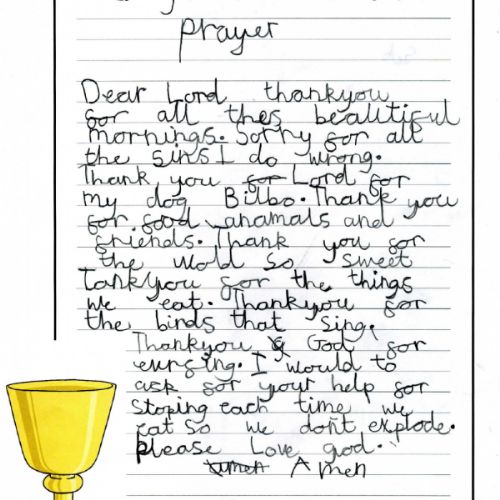 prayer
Dear Lord thankyou
for all thes beautiful
mornings. Sorry for all
the sins I do wrong.
Thank you for Lord for
my dog Bilbo. Thank you
for food anamals and
friends. Thank you for
the world so sweet
Tankyou for the things
we eat. Thankyou for
the birds that sing.
Thankyou God for
evrging. I would to
ask for your help for
stoping each time we
eat so we don't explode.
please Love god.
Amen Amen